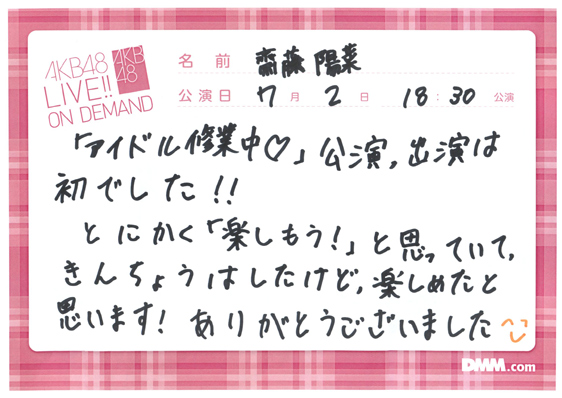 AKB48
LIVE!!
ON DEMAND
AKB
48
名前 齋藤 陽菜
公演日 7月2日 18:30 公演
「アイドル修業中♡」公演,出演は
初でした!!
とにかく「楽しもう!」と思っていて,
きんちょうはしたけど,楽しめたと
思います! ありがとうございました
DMM.com